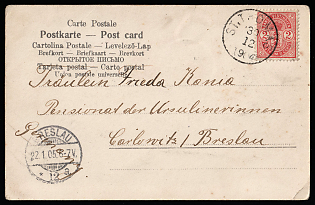 Carte Postale
Postkarte — Post card
Cartolina Postale — Levelező-Lap
Brefkort — Briefkaart — Brevkort
ОТКРЫТОЕ ПИСЬМО
Tarjeta postal — Carta postal
Union postale universelle
Fräulein Frieda Kania
Pensionat der Ursulinerinnen
Carlowitz / Breslau
BRESLAU
22.1.05